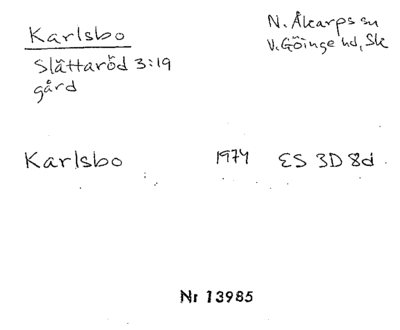 Karlsbo
N. Åkarps sn
V. Göinge hd, Sk
Slättaröd 3:19
gård
Karlsbo 1974 ES 3D 8d
Nr 13985